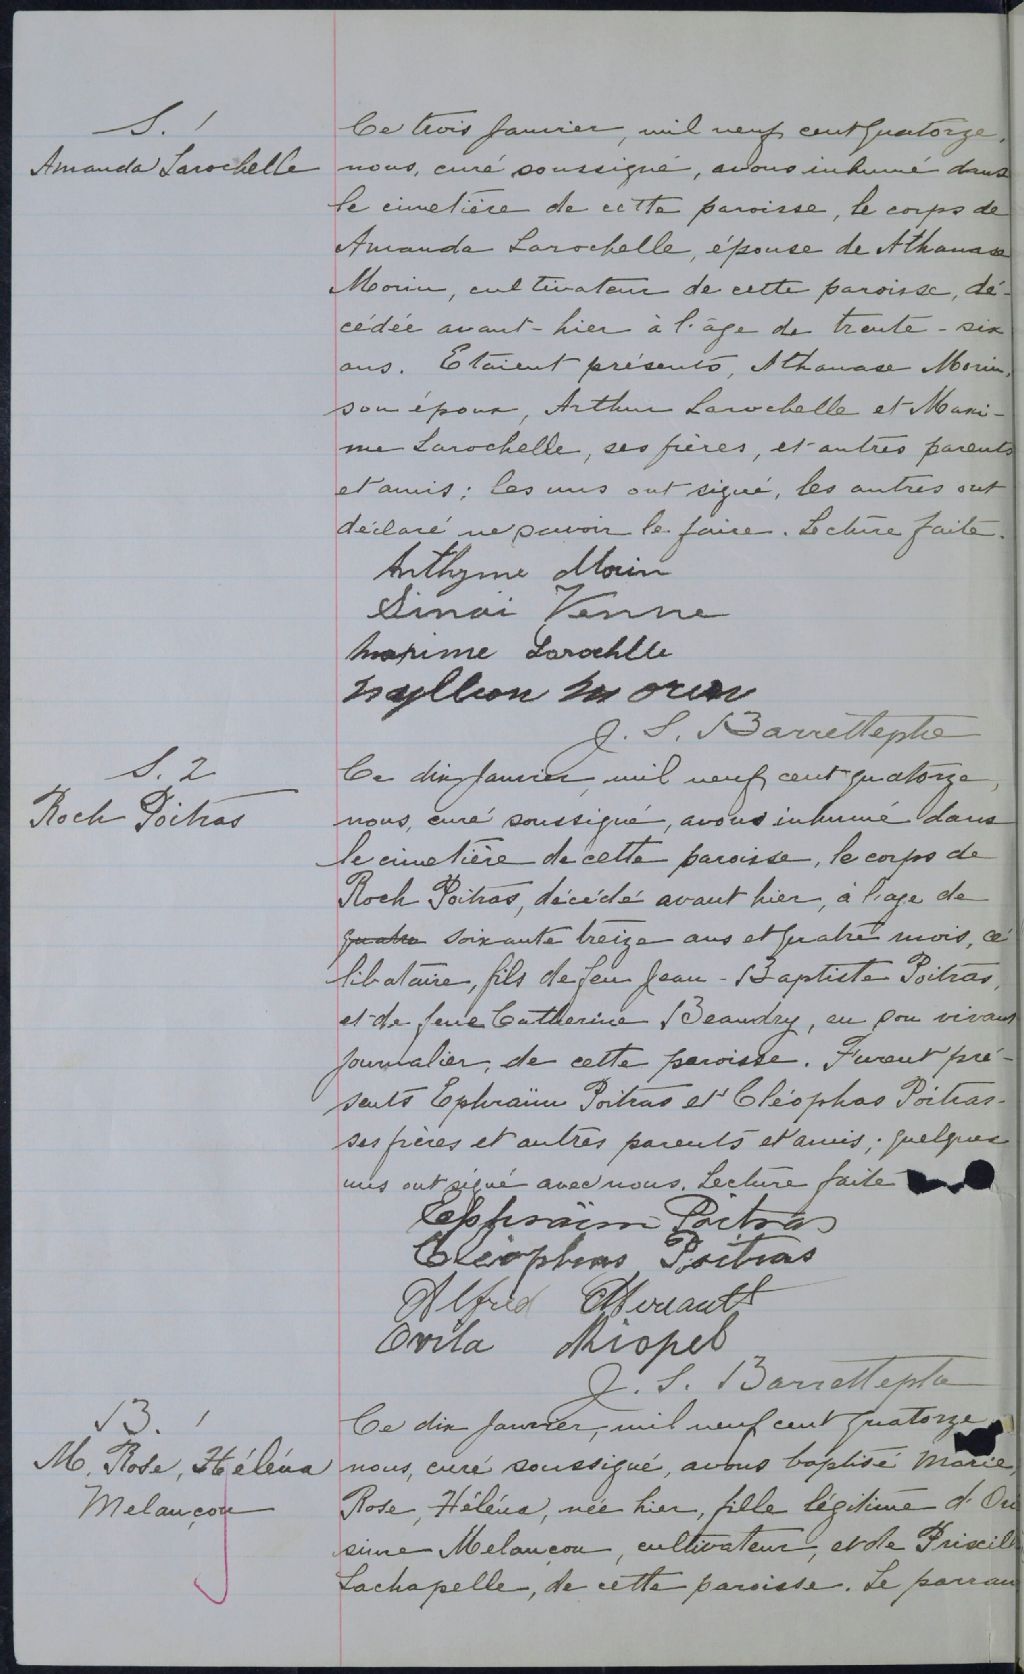 S. 1
Amanda Larochelle
Ce trois Janvier, mil neuf cent quatorze,
nous, curé soussigné, avons inhumé dans
le cimetière de cette paroisse, le corps de
Amanda Larochelle, épouse de Athanase
Morin, cultivateur de cette paroisse, dé-
cédée avant-hier à l'âge de trente-six
ans. Etaient présents, Athanase Morin,
son époux, Arthur Larochelle et Maxi-
me Larochelle, ses frères, et autres parents
et amis; les uns ont signé, les autres ont
déclaré ne savoir le faire. Lecture faite.
Anthyme Morin
Sinai Venne
Maxime Larochlle
Morin
J. S. Barrette ptre
S. 2
Roch Poitras
Ce dix Janvier, mil neuf cent quatorze,
nous, curé soussigné, avons inhumé dans
le cimetière de cette paroisse, le corps de
Roch Poitras, décédé avant hier, à l'age de
quatre soixante treize ans et quatre mois, cé
libataire, fils de feu Jean-Baptiste Poitras,
et de feue Catherine Beaudry, en son vivant
journalier, de cette paroisse. Furent pré-
sents Ephraïm Poitras et Cléophas Poitras
ses frères et autres parents et amis; quelques
uns ont signé avec nous. Lecture faite
Ephraïm Poitras
Cléophas Poitras
Alfred
Ovila Miopel
J. S. Barrette ptre
B. 1
M. Rose, Héléna
Melançon
Ce dix Janvier, mil neuf cent quatorze
nous, curé soussigné, avons baptisé Marie,
Rose, Héléna, née hier, fille légitime d'On
sime Melançon, cultivateur, et de Priscill
Lachapelle, de cette paroisse. Le parrain